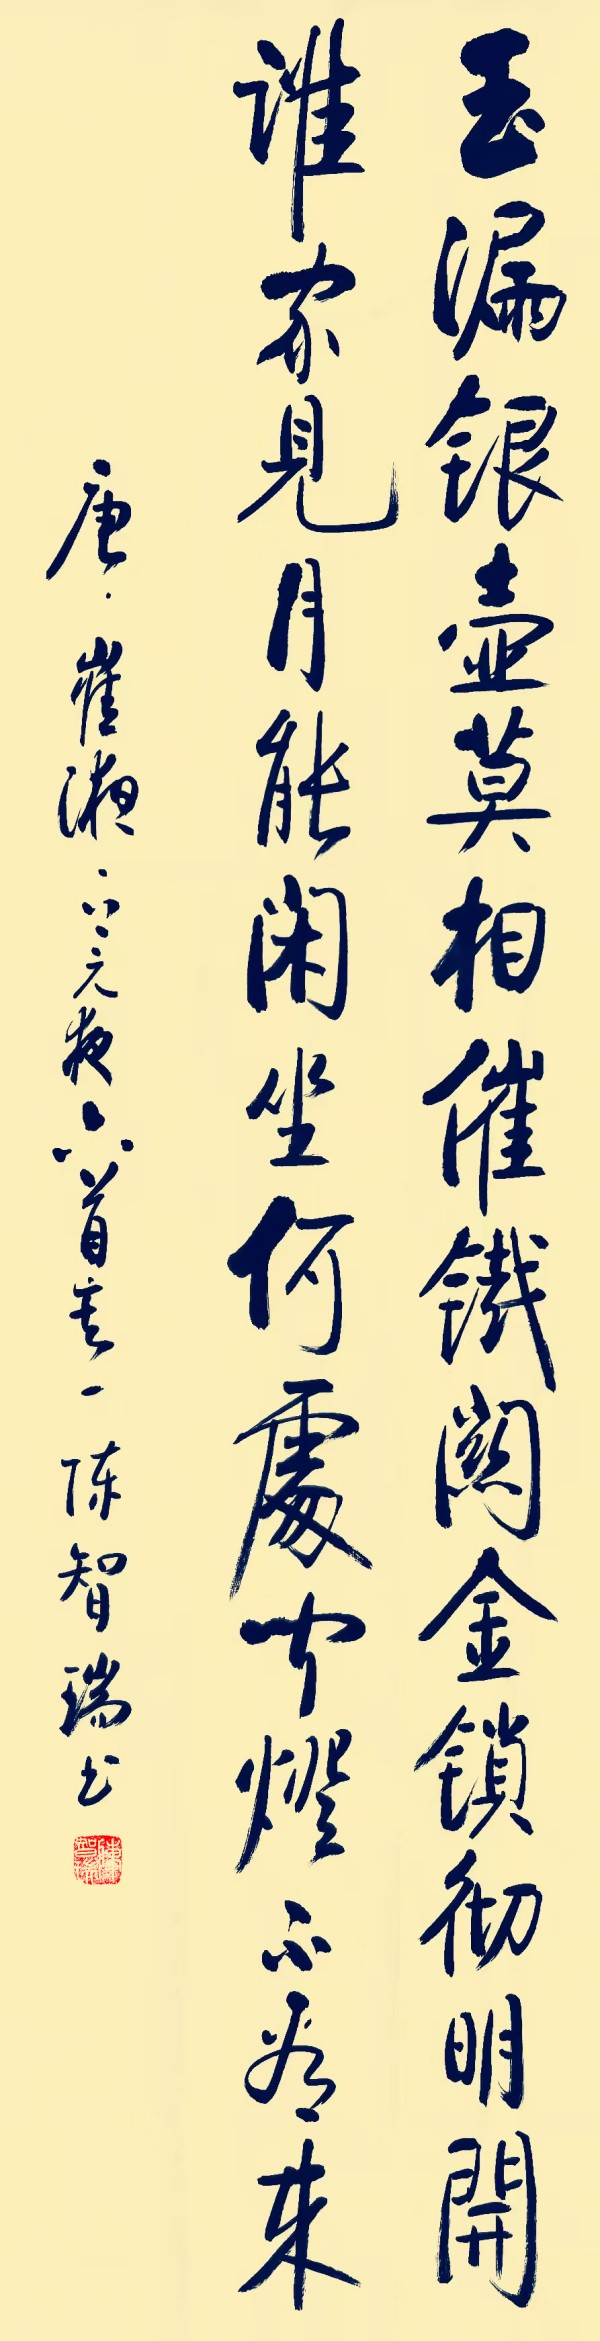 玉漏银壶莫相催鐵闗金鎖彻明開
谁家見月能闲坐何處闻燈不看来
唐·崔液·上元夜六首其一陈智瑞书